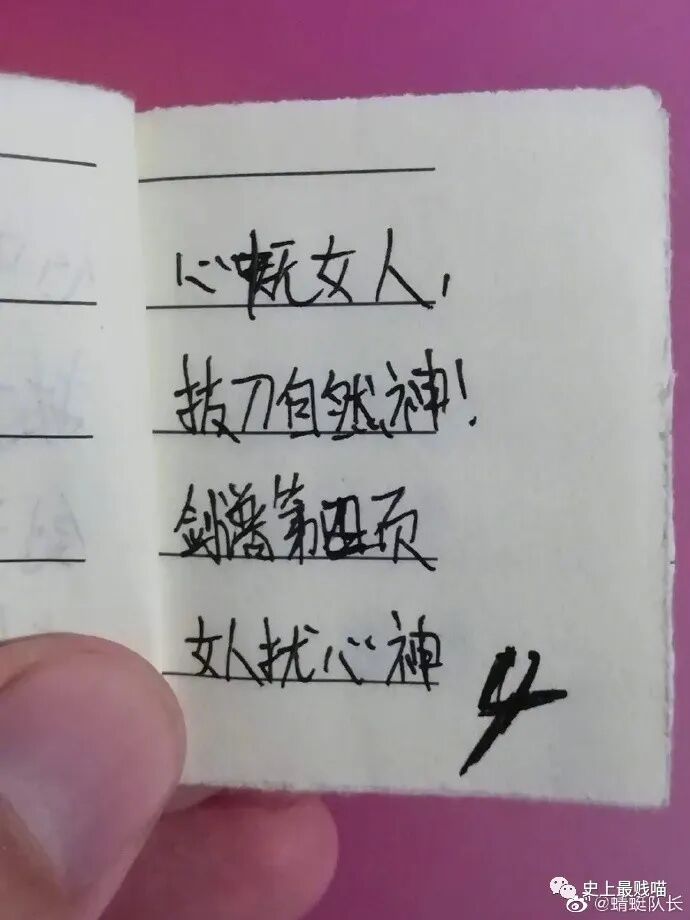 心中无女人,
拔刀自然神!
剑谱第四页
女人扰心神
4
史上最贱喵
@蜻蜓队长